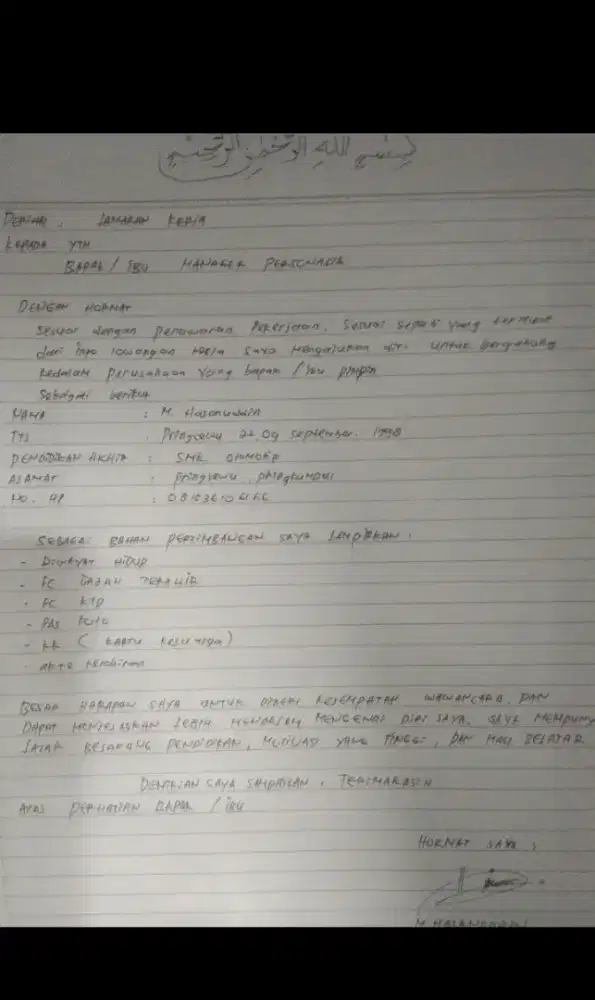 بسم الله الرحمن الرحيم
LAMARAN KERJA
KEPADA YTH
BAPAK / IBU MANAGER PERSONALIA
DENGAN HORMAT
Sesuai dengan penawaran Pekerjaan, Sesuai seperti yang
dari info lowongan kerja saya mengajukan diri untuk bergabung
kedalam perusahaan yang bapak / ibu pimpin
Sebagai berikut
NAMA : M. Hasanuddin
TTL : Pringsewu 22, 09 September. 1998
PENDIDIKAN AKHIR : SMK OTOMOTIF
ALAMAT : Pringsewu
NO. HP :
SEBAGAI BAHAN PERTIMBANGAN SAYA LAMPIRKAN :
- HIDUP
- FC IJAZAH
- FC KTP
- PAS FOTO
- KK ( KARTU Keluarga)
- AKTE
BESAR HARAPAN SAYA UNTUK DIBERI KESEMPATAN WAWANCARA, DAN
DAPAT MENJELASKAN LEBIH MENDALAM MENGENAI DIRI SAYA. SAYA MEMPUNY
BELAKANG PENDIDIKAN, MOTIVASI YANG TINGGI, DAN MAU BELAJAR
DEMIKIAN SAYA SAMPAIKAN, TERIMAKASIH
ATAS PERHATIAN BAPAK / IBU
HORMAT SAYA,